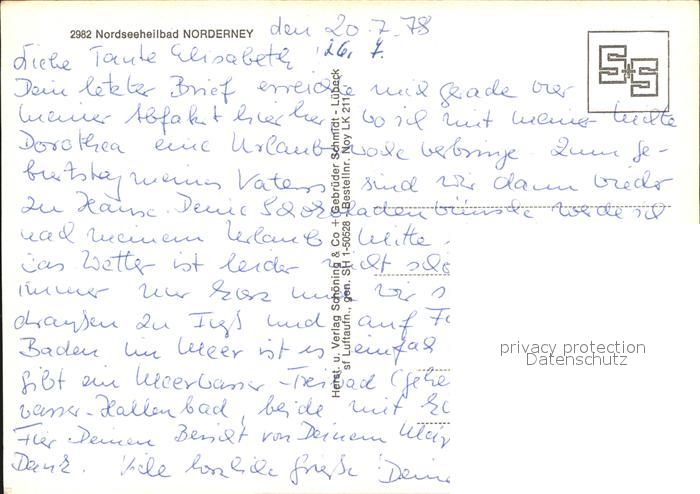 2982 Nordseeheilbad NORDERNEY
den 20.7.78
Liebe Tante Elisabeth! 26. 7.
Dein letzter Brief erreichte mich gerade vor
meiner Abfahrt hierher, wo ich mit meiner Nichte
Dorothea eine Urlaubswoche verbringe. Zum Ge-
burtstag meines Vaters sind wir dann wieder
zu Hause. Deine wünsche werde ich
nach meinem Urlaub Mitte
das Wetter ist leider nicht
immer nur kurz und wir
draußen zu Fuß und auf
Baden im Meer ist es
gibt ein Meerwasser-Freibad
wasser-Hallenbad, beide mit
Für Deinen Bericht von Deinem
Dank. Viele herzliche Grüße! Deine
Herst. u. Verlag Schöning & Co + Gebrüder Schmidt - Lübeck
sf Luftaufn., gen. SH 1-50528 Bestellnr. Noy LK 211
S+S
privacy protection
Datenschutz